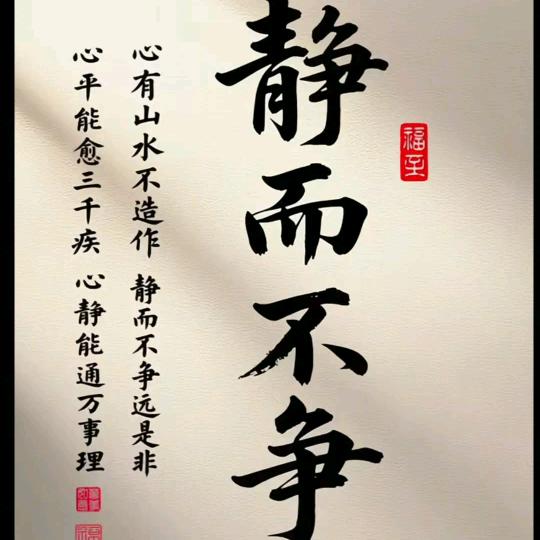 福至
静而不争
心有山水不造作 静而不争远是非
心平能愈三千疾 心静能通万事理